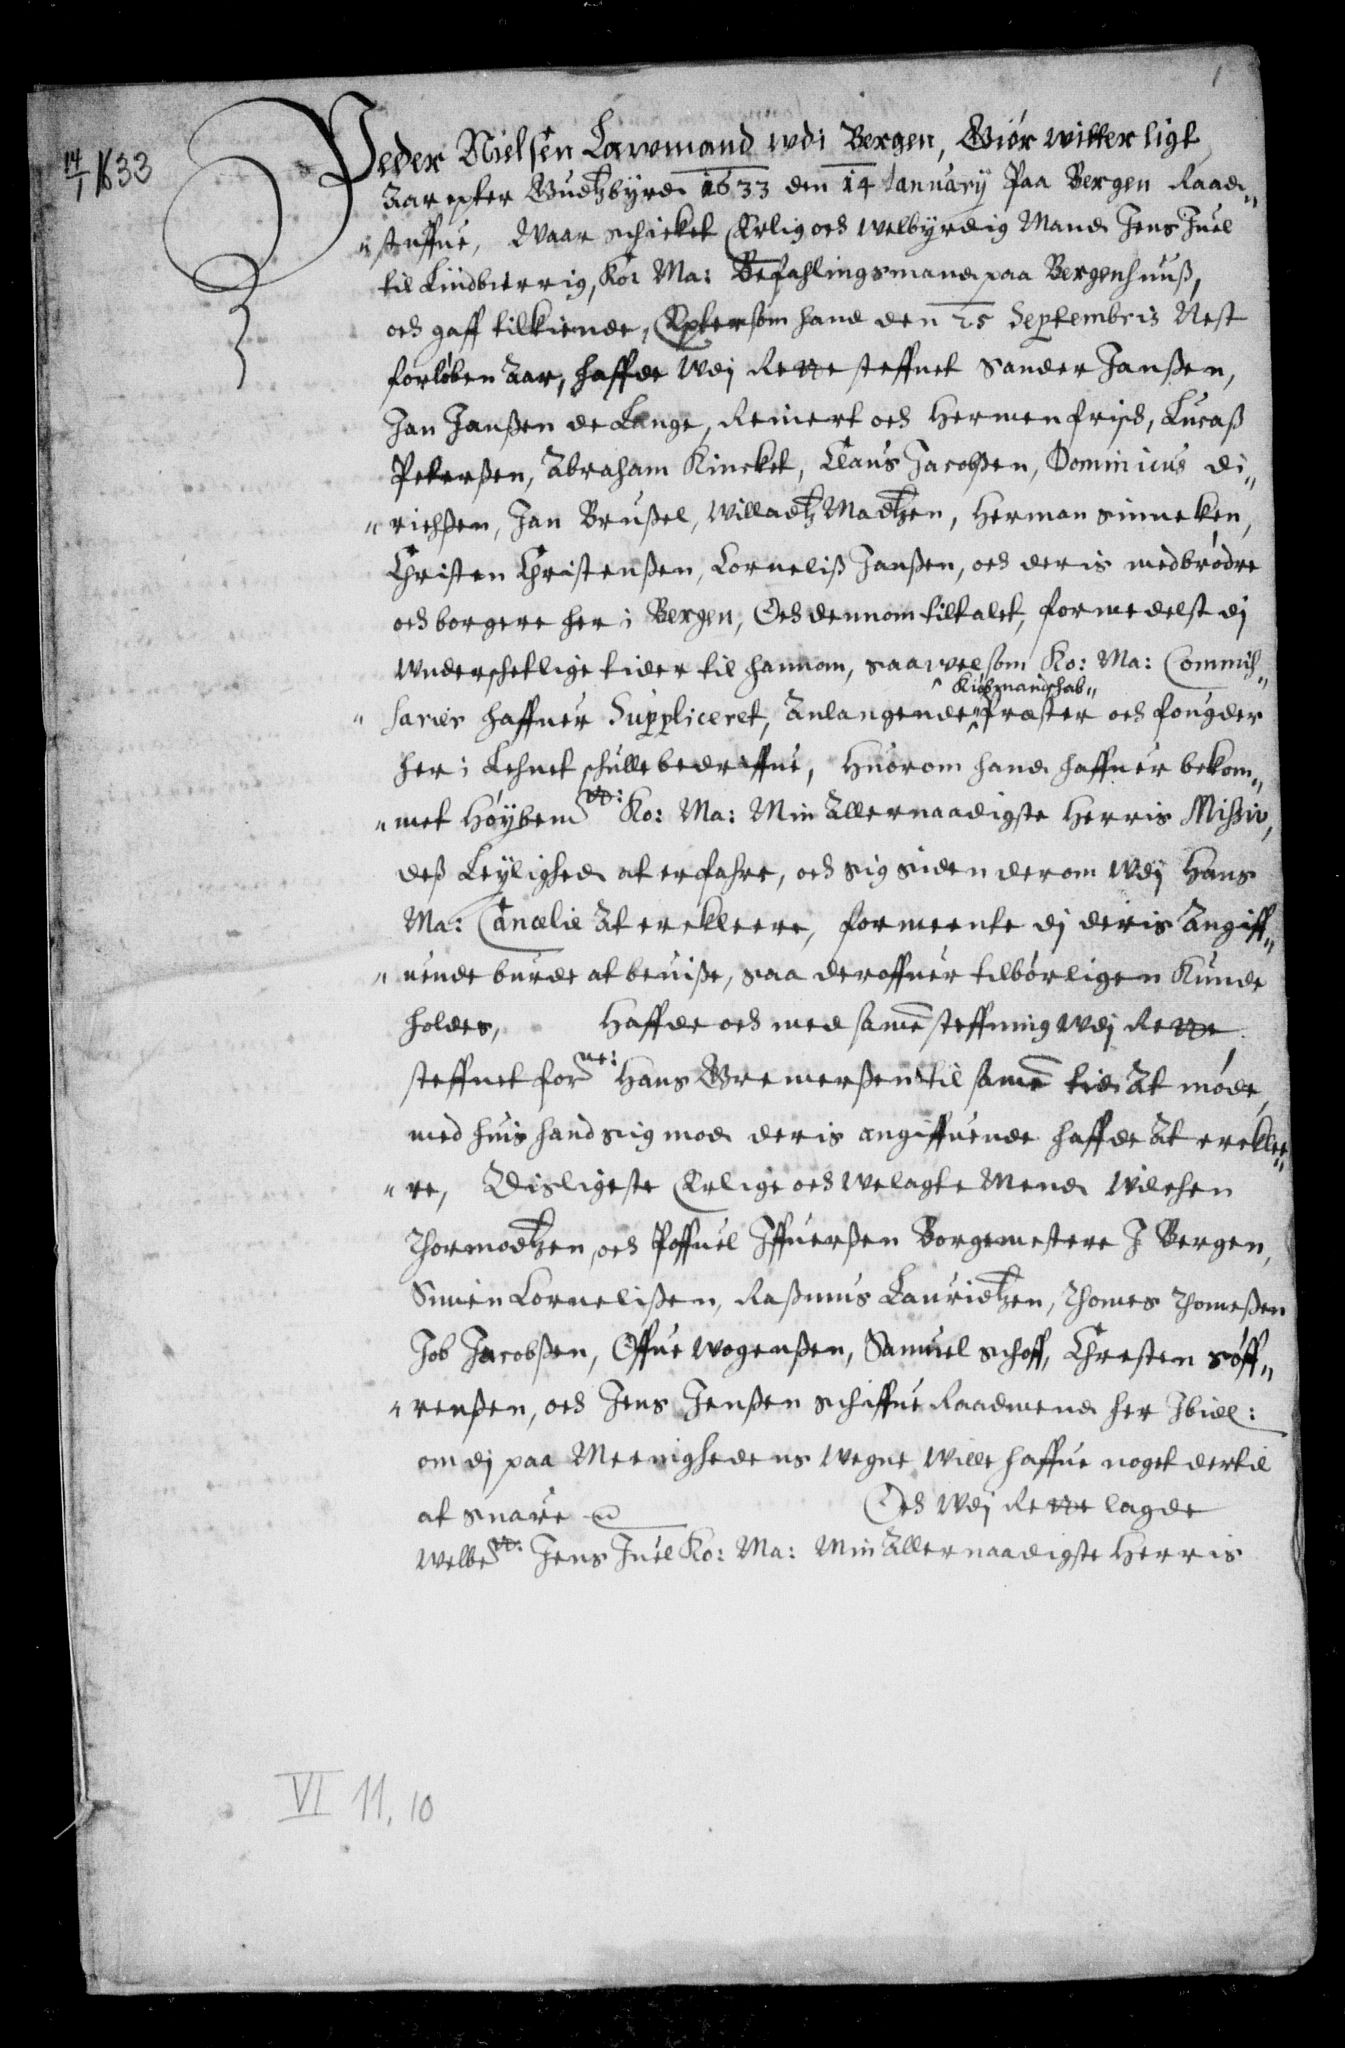 1
14/1 1633
Peder Nielsen Lawmand wdi Bergen, Giör witterligt
Aar epter Gudtzbyrd 1633 den 14 January Paa Bergen Raad„
„stuffue, Waar schicket Erlig och welbyrdig Mand Jens Juel
til Lindbierrig, Ko: Ma: Befahlingsmand paa Bergenhuuß,
och gaff tilkiende, Epter som hand den 25 Septembris Nest
forløben Aar, haffde Wdj Rette steffnet Sander Janßen,
Jan Janßen de Lange, Reinert och Hermen frisch, Lucaß
Peterßen, Abraham Kincket, Claus Jacobßen, Dominicus Di„
„richßen, Jan Brußel, Willadtz Madtzen, Herman Sinneken,
Christen Christenßen, Corneliß Janßen, och deris medbrødre
och borgere her i Bergen, Och dennom tiltalet, formedelst dj
Wnderschetlige tider til hannom, saawelsom Ko: Ma: Commis„
^ Kiøbmandschab„
„ saries haffuer Suppliceret, Anlangende præster och fougder
her i Lehnet schulle bedriffue, Huorom hand haffuer bekom„
„met Höybemte: Ko: Ma: Min Allernaadigste Herris Missiv,
deß Leylighed at erfahre, och sig siden derom Wdj Hans
Ma: Cancelie At erekleere, formeente dj deris Angiff„
„uende burde at beuiße, saa deroffuer tilbörligen Kunde
holdes, Haffde och med samme steffning Wdj Rette
steffnet forne: Hans Gremerßen til samme tid At møde,
med huis hand sig mod deris angiffuende haffde At erklee„
„re, Disligeste Erlige och Welagte Mend Wilchen
Thormodtzen, och Poffuel Iffuerßen Borgemestere I Bergen,
Simen Cornelißen, Raßmus Lauridtzen, Thomes Thomeßen
Job Jacobßen, Offue Wogenßen, Samuel Schoff, Christen Söff„
„renßen, och Jens Jenßen Schiffue Raadmend her Ibid:
om dj paa Meenighedens Wegne Wille haffue noget dertil
at suare Och Wdj Rette lagde
Welbte: Jens Juel Ko: Ma: Min Allernaadigste Herris
VI 11, 10